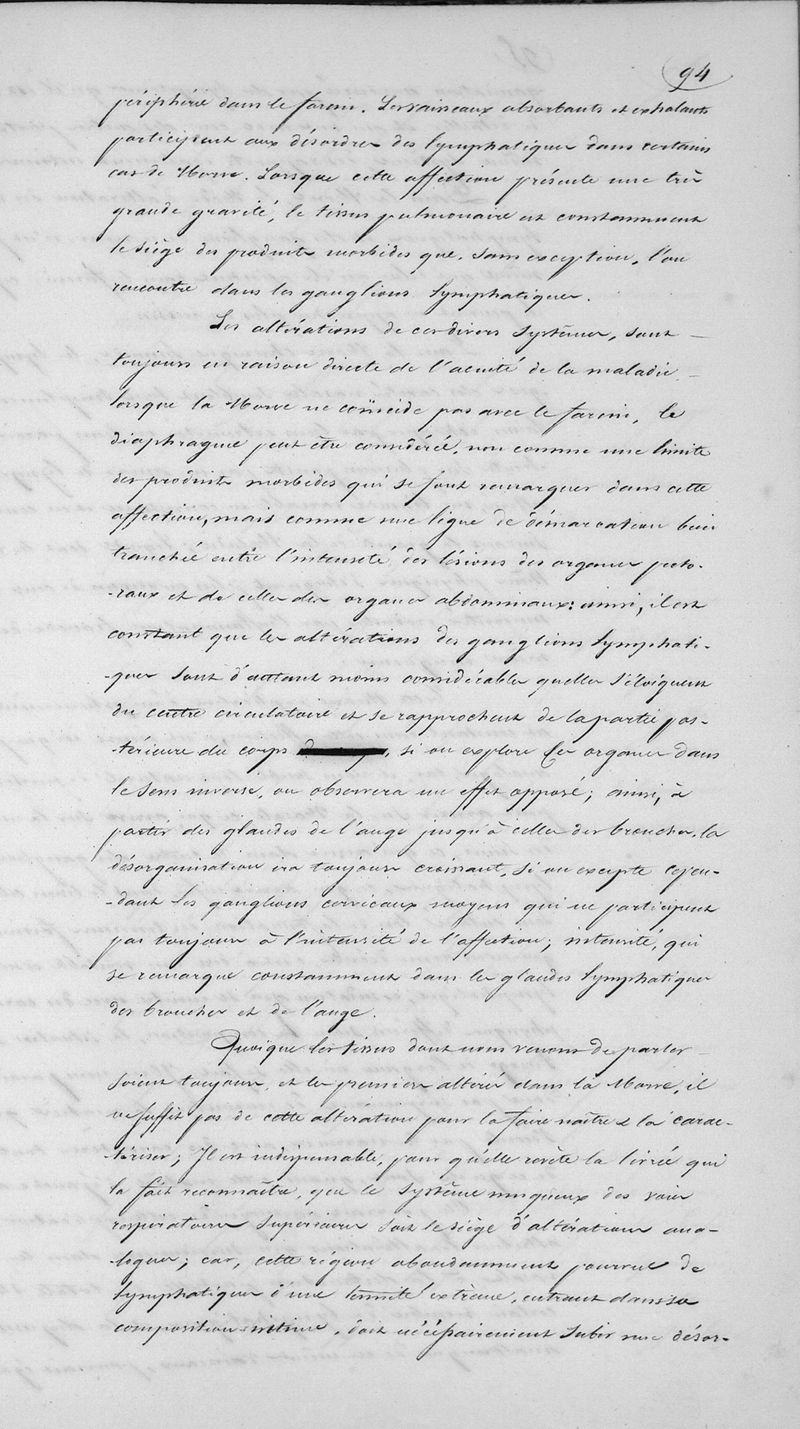 94
périphérie dans le farcin. Les vaisseaux absorbants et exhalants
participent aux désordres des lymphatiques dans certains
cas de Morve. Lorsque cette affection présente une très
grande gravité, le tissus pulmonaire est constamment
le siège des produits morbides que, sans exception, l'on
rencontre dans les ganglions lymphatiques.
Les altérations de ces divers systèmes, sont
toujours en raison directe de l'acuité de la maladie
lorsque la Morve ne coïncide pas avec le farcin, le
diaphragme peut être considéré, non comme une limite
des produits morbides qui se font remarquer dans cette
affection, mais comme une ligne de démarcation bien
tranchée entre l'intensité des lésions des organes pecto-
-raux et de celles des organes abdominaux: ainsi, il est
constant que les altérations des ganglions lymphati-
-ques sont d'autant moins considérables quelles s'éloignent
du centre circulatoire et se rapprochent de la partie pos-
-térieure du corps, si on explore les organes dans
le sens inverse, on observera un effet opposé; ainsi, à
partir des glandes de l'auge jusqu'à celles des bronches, la
désorganisation ira toujours croissant, si on excepte cepen-
-dant les ganglions cervicaux moyens qui ne participent
pas toujours à l'intensité de l'affection; intensité, qui
se remarque constamment dans les glandes lymphatiques
des bronches et de l'auge.
Quoique les tissus dont nous venons de parler
soient toujours, et les premiers altérés dans la Morve, il
ne suffit pas de cette altération pour la faire naître & la carac-
-tériser; Il est indispensable, pour qu'elle revête la livrée qui
la fait reconnaître, que le système muqueux des voies
respiratoires supérieures soit le siège d'altérations ana-
-logues; car, cette région abondamment pourvue de
lymphatiques d'une ténuité extrême, entrant dans sa
composition intime, doit nécéssairement subir une désor-